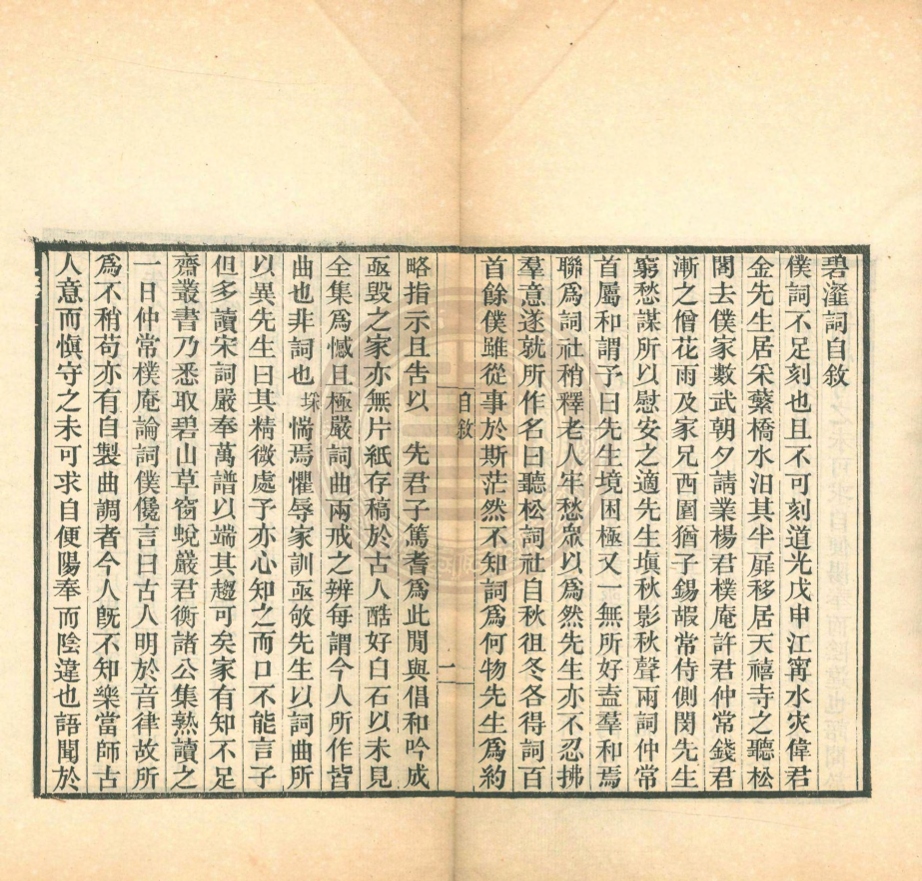 碧瀣詞自敘
僕詞不足刻也且不可刻道光戊申江寗水灾偉君
金先生居釆蘩橋水汨其半屏移居天禧寺之聽松
閣去僕家數武朝夕請業楊君樸庵許君仲常錢君
漸之僧花雨及家兄西圃猶子錫嘏常侍側閔先生
窮愁謀所以慰安之適先生塡秋影秋聲兩詞仲常
首屬和謂予曰先生境困極又一無所好盍羣和焉
聯爲詞社稍釋老人牢愁眾以爲然先生亦不忍拂
羣意遂就所作名曰聽松詞社自秋徂冬各得詞百
首餘僕雖從事於斯茫然不知詞爲何物先生爲約
自敘
一
略指示且告以　先君子篤耆爲此閒與倡和吟成
亟毀之家亦無片紙存稿於古人酷好白石以未見
全集爲憾且極嚴詞曲兩戒之辨每謂今人所作皆
曲也非詞也埰惴焉懼辱家訓亟敂先生以詞曲所
以異先生曰其精微處予亦心知之而口不能言子
但多讀宋詞嚴奉萬譜以端其趨可矣家有知不足
齋叢書乃悉取碧山草窗蛻巖君衡諸公集熟讀之
一日仲常樸庵論詞僕儳言曰古人明於音律故所
爲不稍苟亦有自製曲調者今人旣不知樂當師古
人意而愼守之未可求自便陽奉而陰違也語聞於